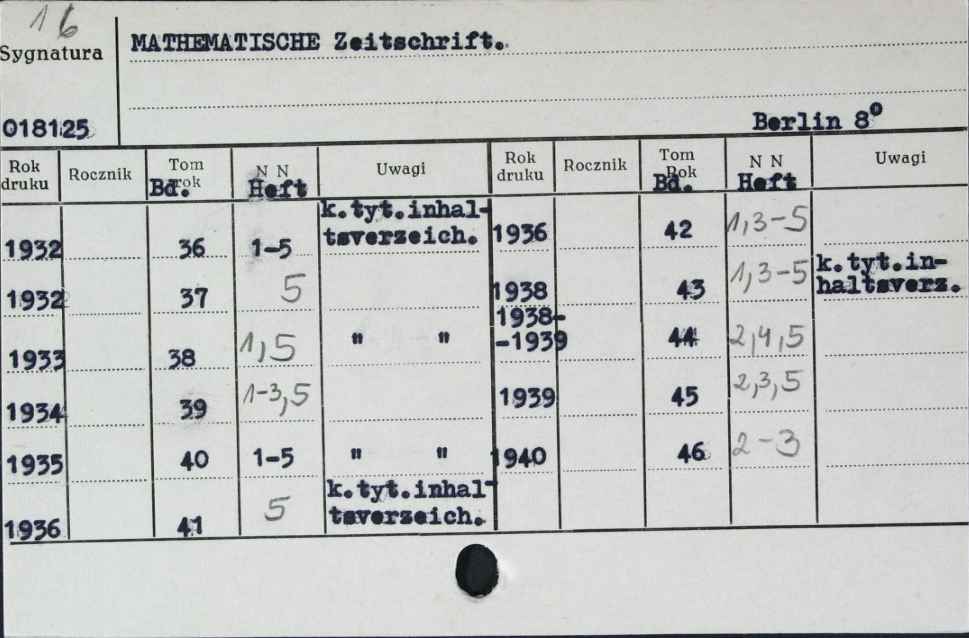 16
Sygnatura
MATHEMATISCHE Zeitschrift.
018125
Berlin 8°
Rok druku Rocznik Tom rok Bd. N N Heft Uwagi Rok druku Rocznik Tom Rok Bd. N N Heft Uwagi
k.tyt.inhal-
1932 36 1-5 tsverzeich.
1932 37 5
1933 38 1,5 " "
1934 39 1-3,5
1935 40 1-5 " "
k.tyt.inhal-
1936 41 5 tsverzeich.
1936 42 1,3-5
k.tyt.in-
1938 43 1,3-5 haltsverz.
1938-
-1939 44 2,4,5
1939 45 2,3,5
1940 46 2-3